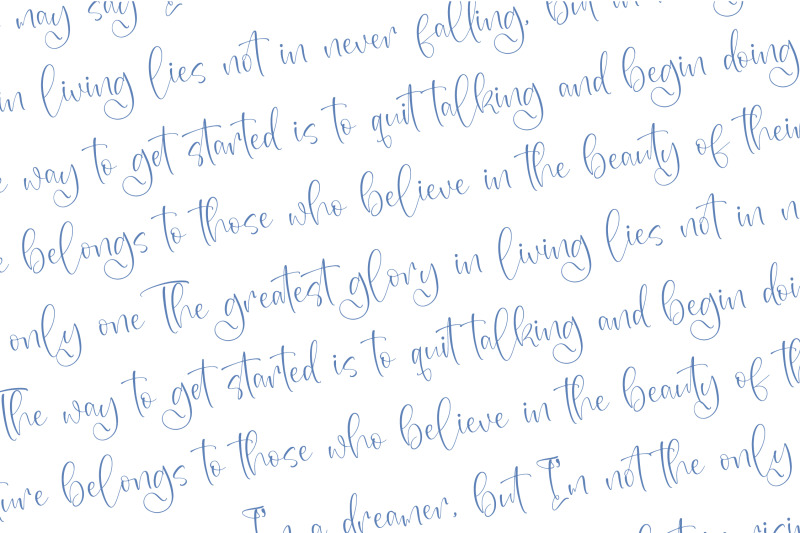 may say
in living lies not in never falling, but in
way to get started is to quit talking and begin doing
belongs to those who believe in the beauty of their
only one The greatest glory in living lies not in
The way to get started is to quit talking and begin doi
ture belongs to those who believe in the beauty of th
I'm a dreamer, but I'm not the only